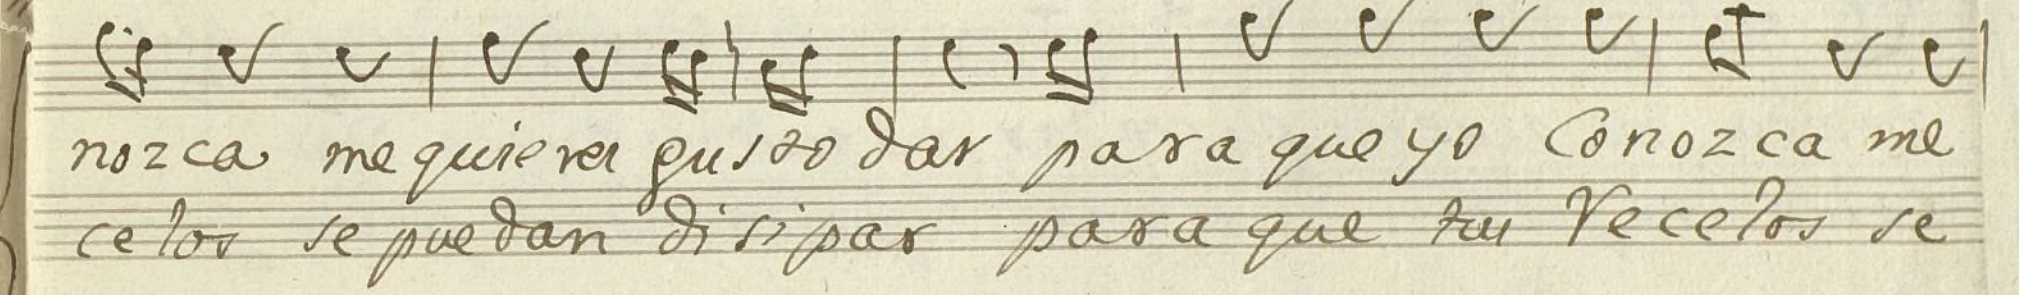 nozca me quieres gusto dar para que yo Conozca me
celos se puedan disipar para que tus Recelos se